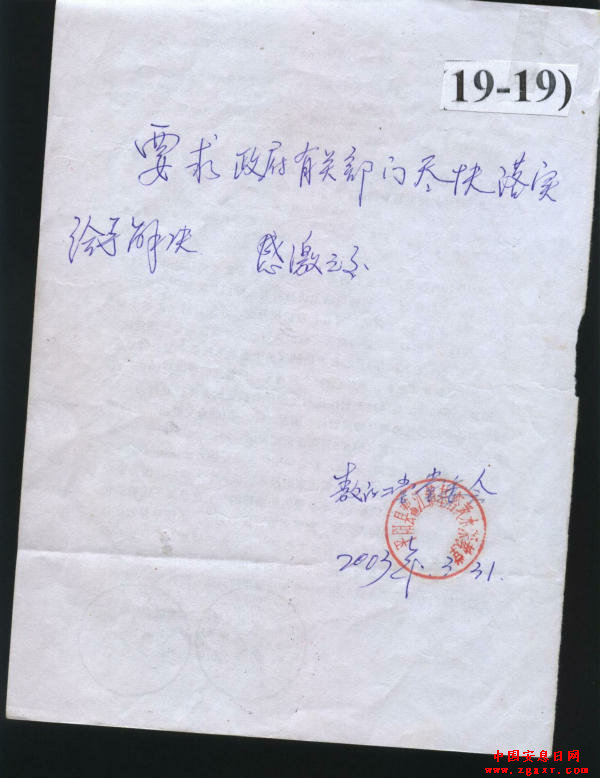 (19-19)
要求政府有关部门尽快落实
给予解决 感激之至
堂委会
2003年.3.31.
中国安息日网
www.zgaxr.com